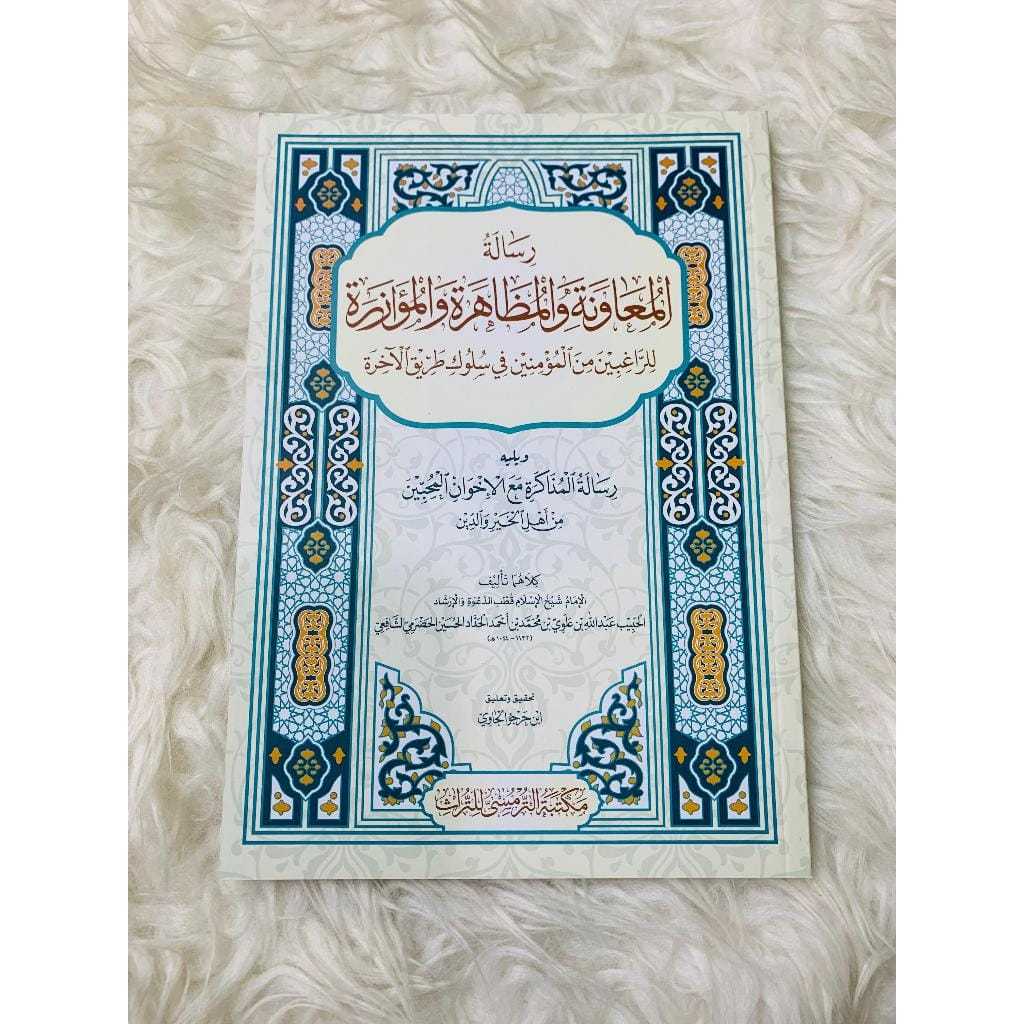 رِسَالَةُ
المُعَاوَنَةِ وَالمُظَاهَرَةِ وَالمُؤَازَرَةِ
لِلرَّاغِبِيْنَ مِنَ الْمُؤْمِنِيْنَ فِي سُلُوكِ طَرِيْقِ الْآخِرَةِ
ويليه
رِسَالَةُ الْمُذَاكَرَةِ مَعَ الْإِخْوَانِ الْمُحِبِّيْنَ
مِنْ أَهْلِ الْخَيْرِ وَالدِّيْنِ
كِلَاهُمَا تَأْلِيْفُ
الإِمَامُ شَيْخُ الإِسْلَامِ قُطْبُ الدَّعْوَةِ وَالإِرْشَادِ
الحَبِيْبِ عَبْدُ اللهِ بْنِ عَلَوِيِّ بْنِ مُحَمَّدِ بْنِ أَحْمَدَ الحَدَّادِ الحُسَيْنِي الحَضْرَمِيِّ الشَّافِعِيِّ
(١٠٤٤ - ١١٣٢ هـ)
تحقيق وتعليق
ابْنِ حَرْجُو الجَاوِي
مَكْتَبَةُ التُّرْمُسِيِّ لِلتُّرَاثِ